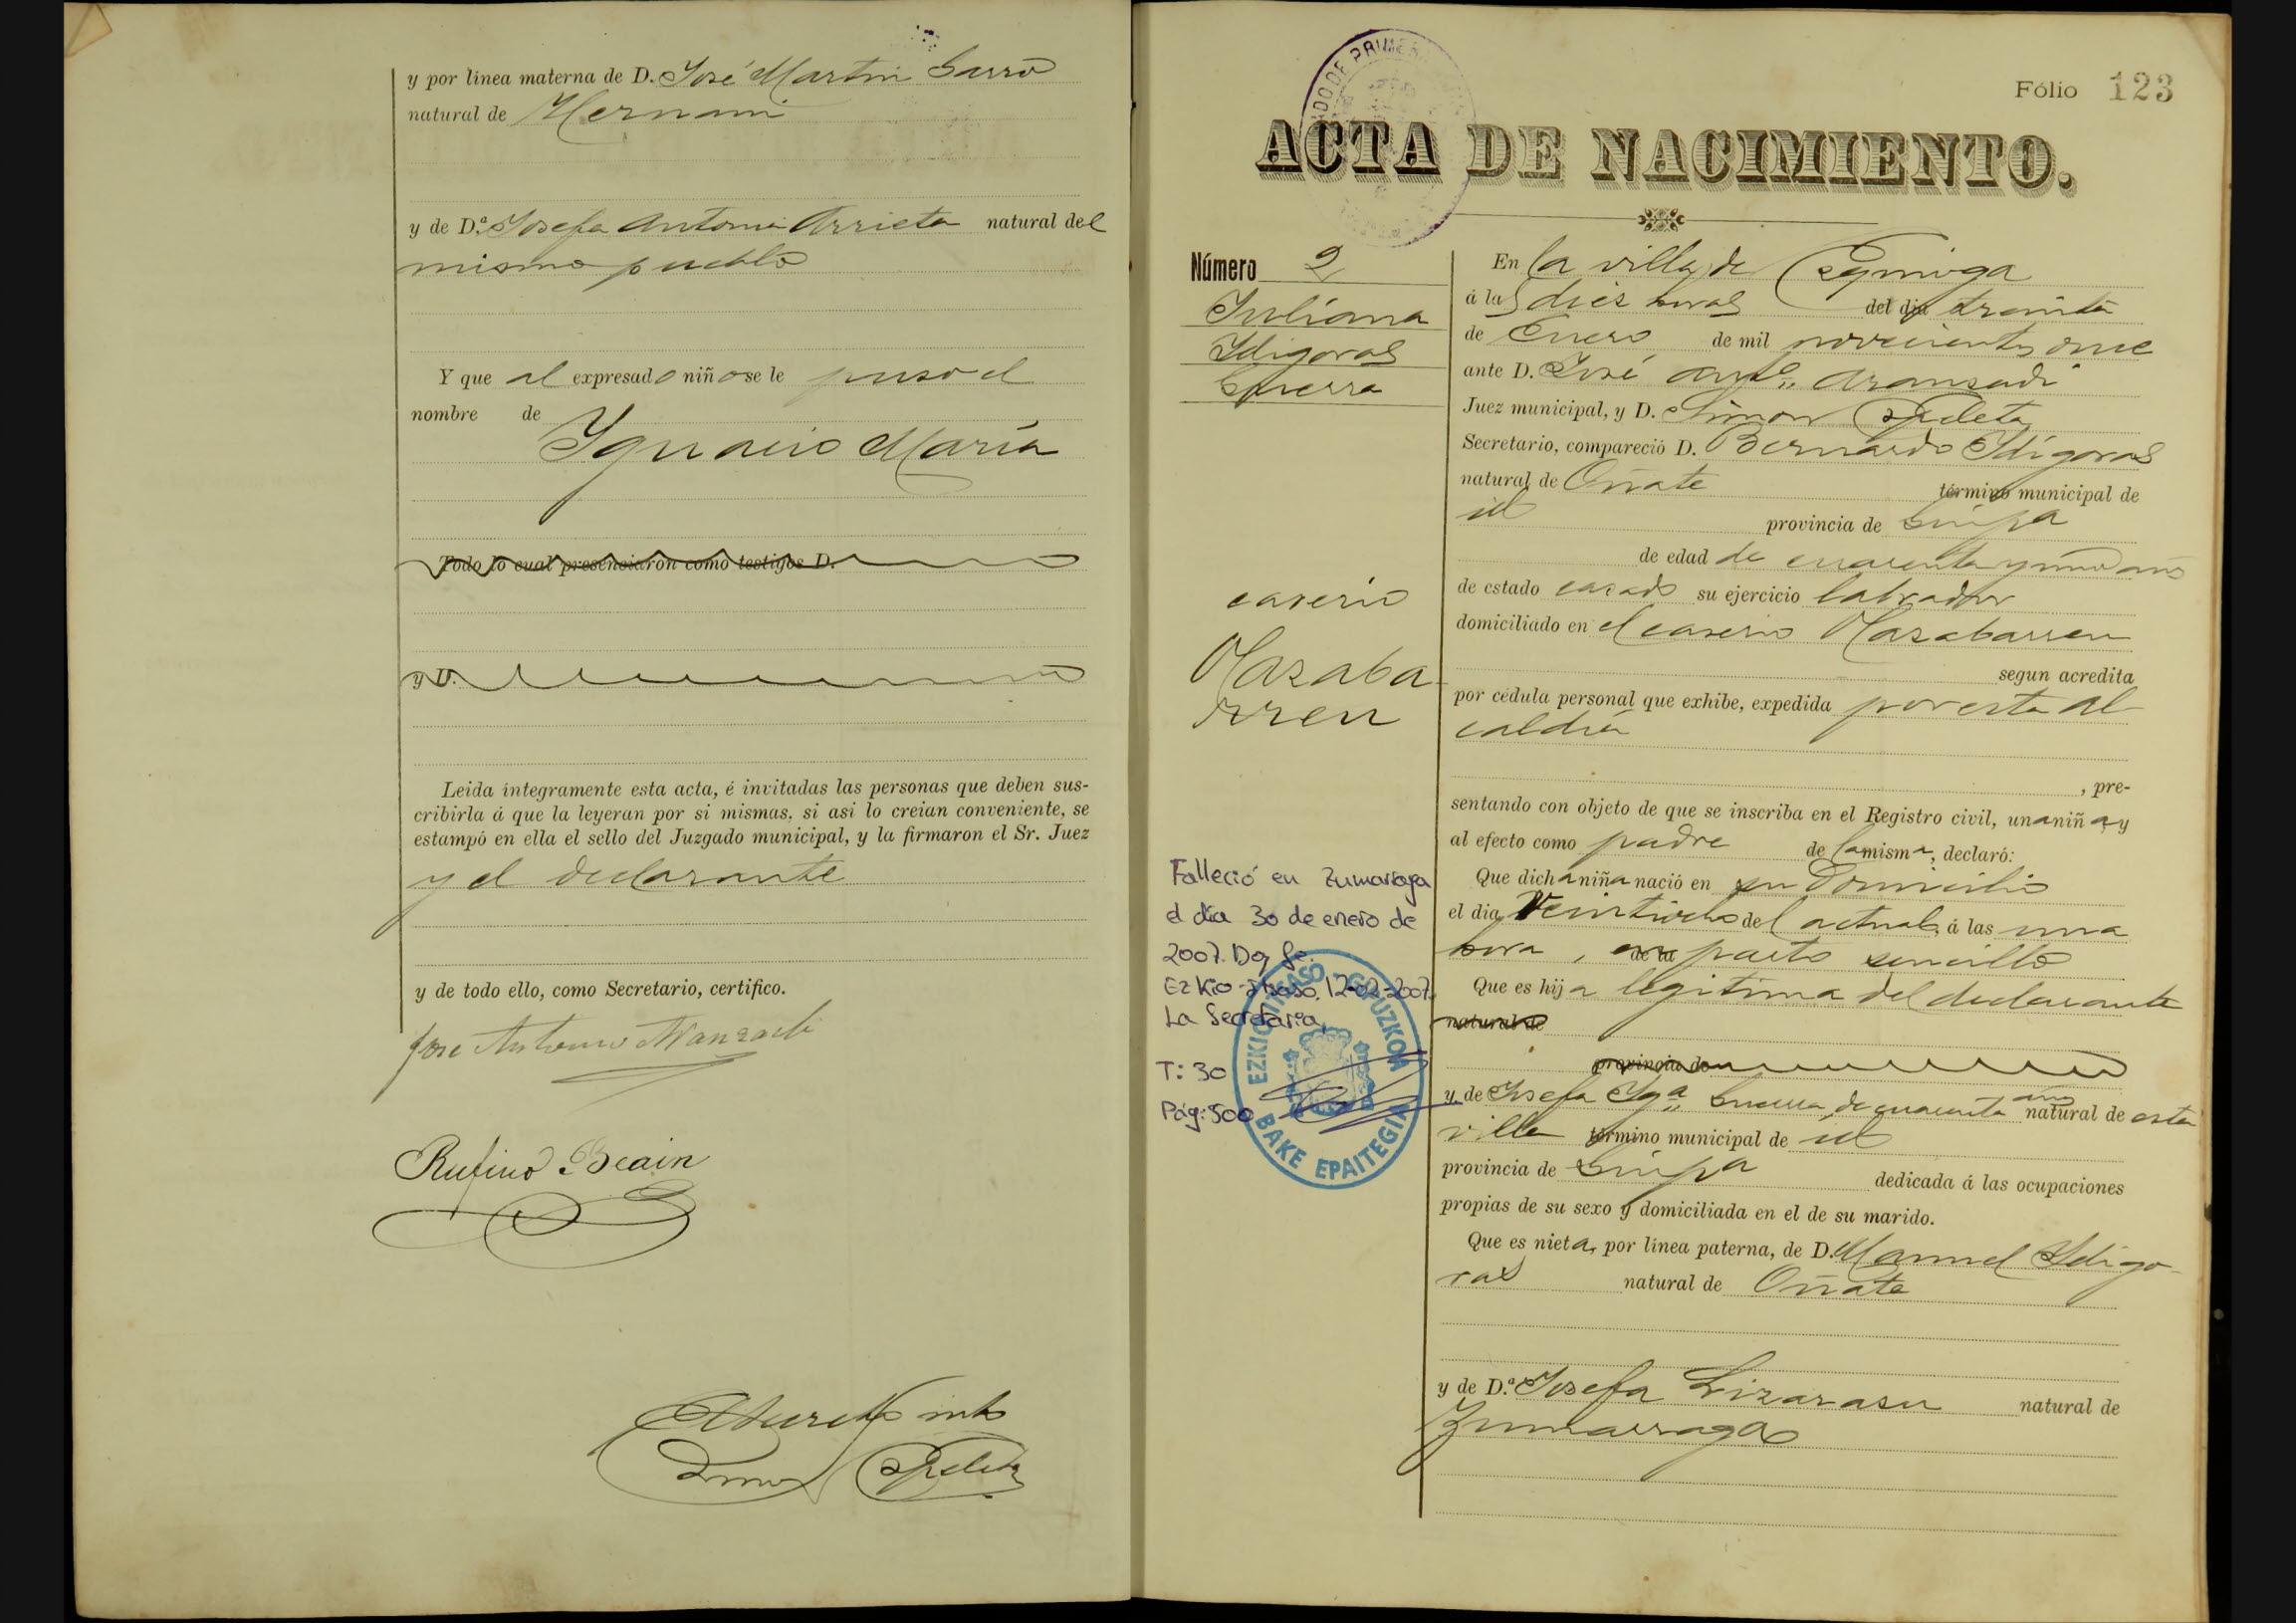 y por línea materna de D. José Martin
natural de Hernani
y de D.ª Josefa Antonia Arrieta natural del
mismo pueblo
Y que al expresado niño se le puso el
nombre de
Ygnacio María
Todo lo cual presenciaron como testigos D.
y D.
Leida íntegramente esta acta, é invitadas las personas que deben sus-
cribirla á que la leyeran por si mismas, si asi lo creian conveniente, se
estampó en ella el sello del Juzgado municipal, y la firmaron el Sr. Juez
y el declarante
y de todo ello, como Secretario, certifico.
José Antonio Aranzadi
Rufino Beain
Fólio 123
ACTA DE NACIMIENTO.
Número 2
Juliana
Ydigoras
Guerra
caserio
Olazaba
rren
Falleció en Zumarraga
el día 30 de enero de
2007. Doy fe.
Ezkio-Itsaso, 12-02-2007.
La Secretaria,
T: 30
Pág: 500
EZKIO-ITSASO GIPUZKOA
BAKE EPAITEGIA
En la villa de Ezquioga
á las diez horas del dia treinta
de Enero de mil novecientos once
ante D. José Antº Aranzadi
Juez municipal, y D. Simon
Secretario, compareció D. Bernardo Ydígoras
natural de Oñate término municipal de
id provincia de Guipa
de edad de cuarenta y un años
de estado casado su ejercicio labrador
domiciliado en el caserio Olazabarren
segun acredita
por cédula personal que exhibe, expedida por esta al
caldía
, pre-
sentando con objeto de que se inscriba en el Registro civil, una niña y
al efecto como padre de la misma, declaró:
Que dicha niña nació en su domicilio
el dia Veintiocho del actual, á las una
hora, de la parto sencillo
Que es hija legítima del declarante
natural de
provincia de
y de Josefa Ygª Guerra, de cuarenta años natural de esta
villa término municipal de id
provincia de Guipa dedicada á las ocupaciones
propias de su sexo y domiciliada en el de su marido.
Que es nieta, por línea paterna, de D. Manuel Ydigo-
ras natural de Oñate
y de D.ª Josefa Lizarasu natural de
Zumarraga